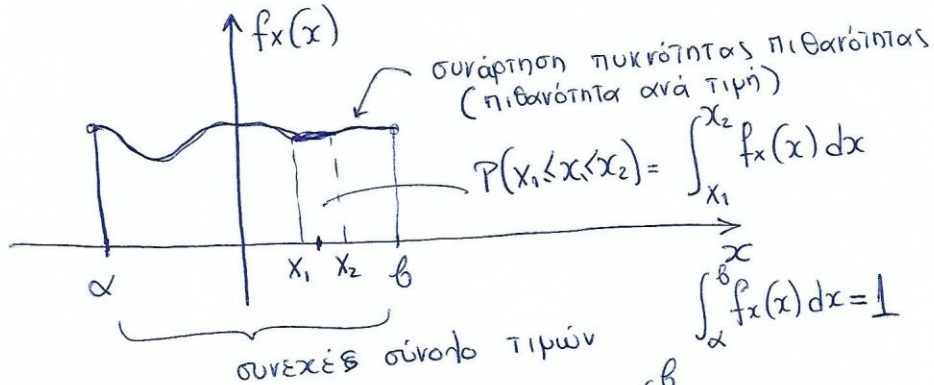 fx(x)
συνάρτηση πυκνότητας πιθανότητας
(πιθανότητα ανά τιμή)
P(x₁≤x≤x₂) = ∫_{x₁}^{x₂} fx(x) dx
α x₁ x₂ β x
∫_α^β fx(x) dx = 1
συνεχές σύνολο τιμών
β